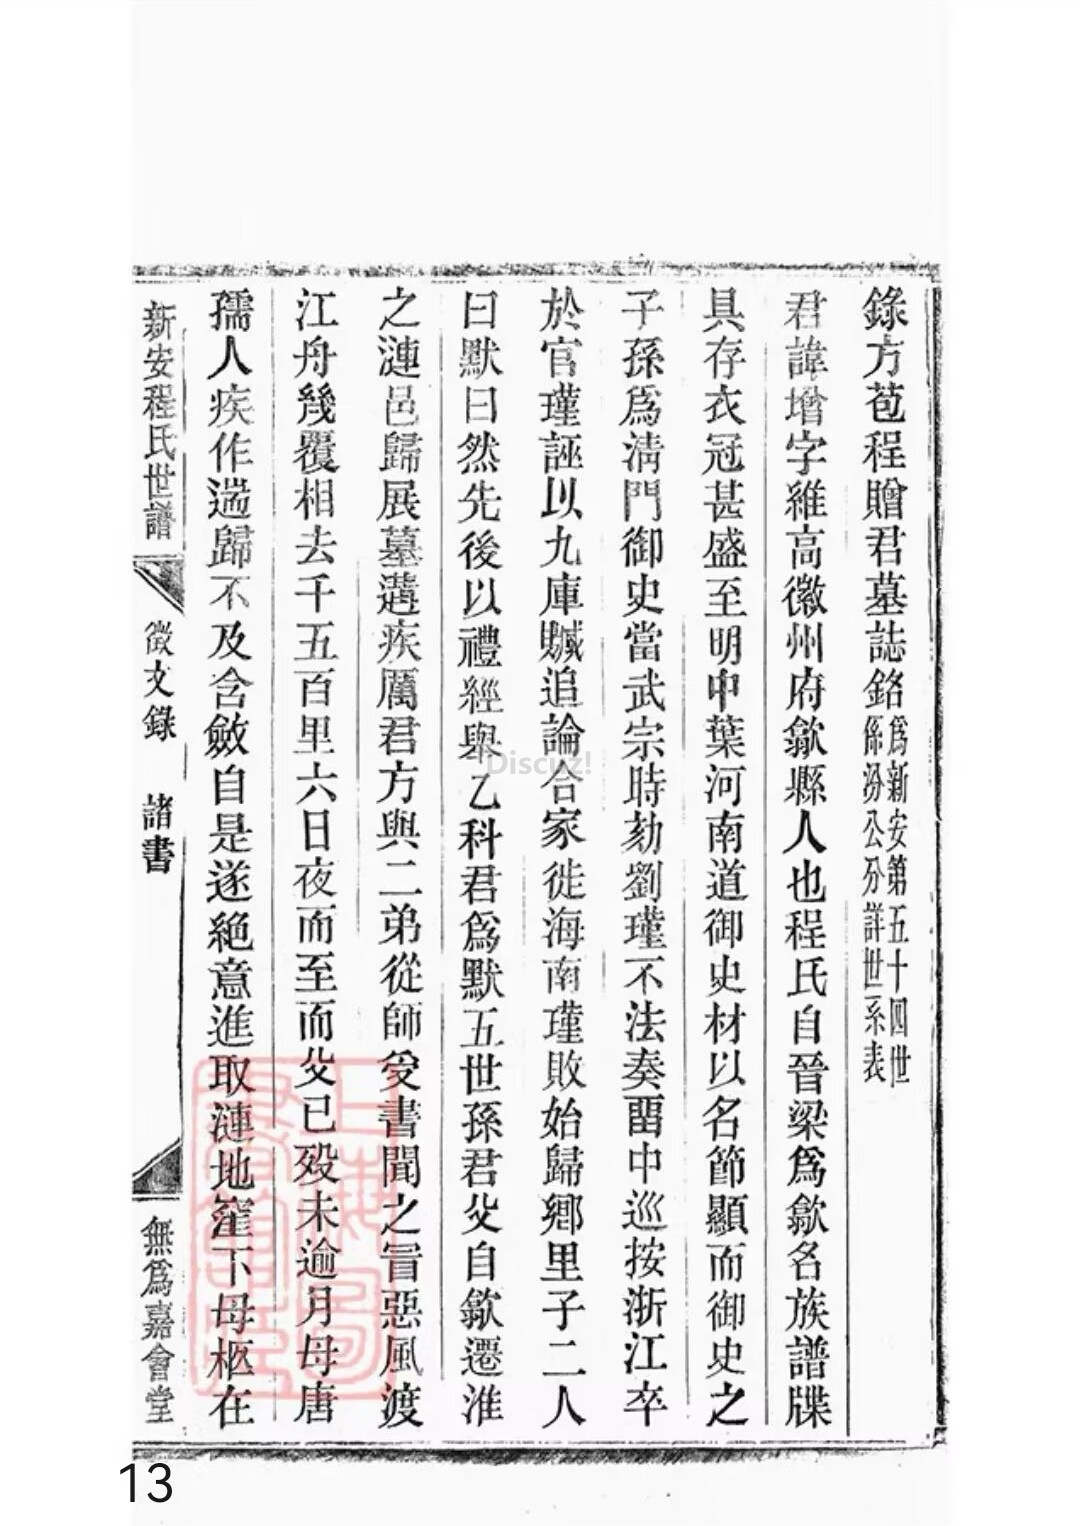 錄方苞程贈君墓誌銘為新安第五十四世係汾公分詳世系表
君諱增字維高徽州府歙縣人也程氏自晉梁爲歙名族譜牒
具存衣冠甚盛至明中葉河南道御史材以名節顯而御史之
子孫爲清門御史當武宗時劾劉瑾不法奏畱中巡按浙江卒
於官瑾誣以九庫贓追論合家徙海南瑾敗始歸鄉里子二人
曰默曰然先後以禮經舉乙科君爲默五世孫君父自歙遷淮
之漣邑歸展墓遘疾厲君方與二弟從師受書聞之冒惡風渡
江舟幾覆相去千五百里六日夜而至而父已歿未逾月母唐
孺人疾作遄歸不及含斂自是遂絶意進取漣地窪下母柩在
新安程氏世譜
徵文錄 諸書
無爲嘉會堂
Discuz!
13